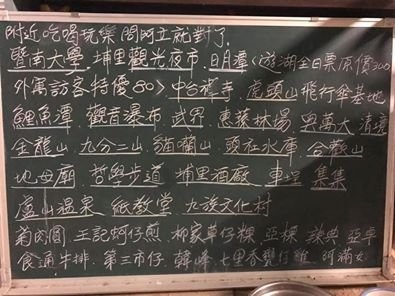 附近吃喝玩樂問阿立就對了.
暨南大學、埔里觀光夜市、日月潭〈遊湖全日票原價300
外寓訪客特優80〉中台禪寺、虎頭山飛行傘基地
鯉魚潭、觀音瀑布、武界、惠蓀林場、奧萬大、清境
金龍山、九分二山、貓囒山、頭社水庫、合歡山
地母廟、哲學步道、埔里酒廠、車埕、集集
盧山溫泉、紙教堂、九族文化村
菊肉圓、王記蚵仔煎、柳家草仔粿、亞標、辣典、亞卓
食通牛排、第三市仔、韓峰、七里香甕仔雞、阿滿女